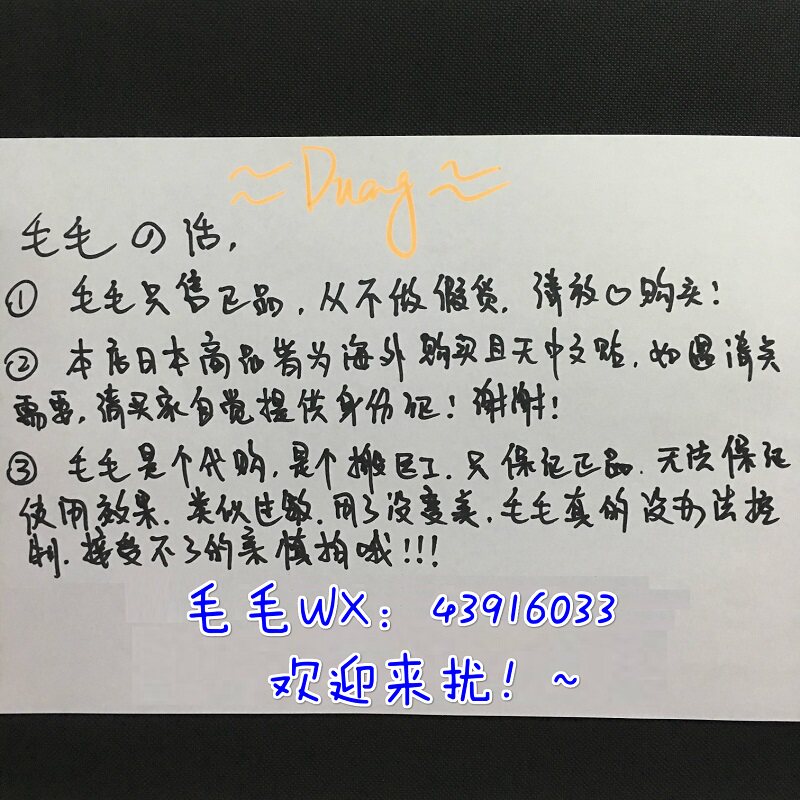 ~Duang~
毛毛の话,
① 毛毛只售正品,从不做假货,请放心购买!
② 本店日本商品皆为海外购买且无中文贴,如遇清关
需要,请买家自觉提供身份证!谢谢!
③ 毛毛是个代购,是个搬巨工,只保证正品,无法保证
使用效果.类似过敏.用了没变美,毛毛真的没办法控
制.接受不了的亲慎拍哦!!!
毛毛WX:43916033
欢迎来扰!~